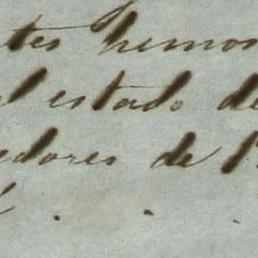 tes hemos
l estado de
edores de